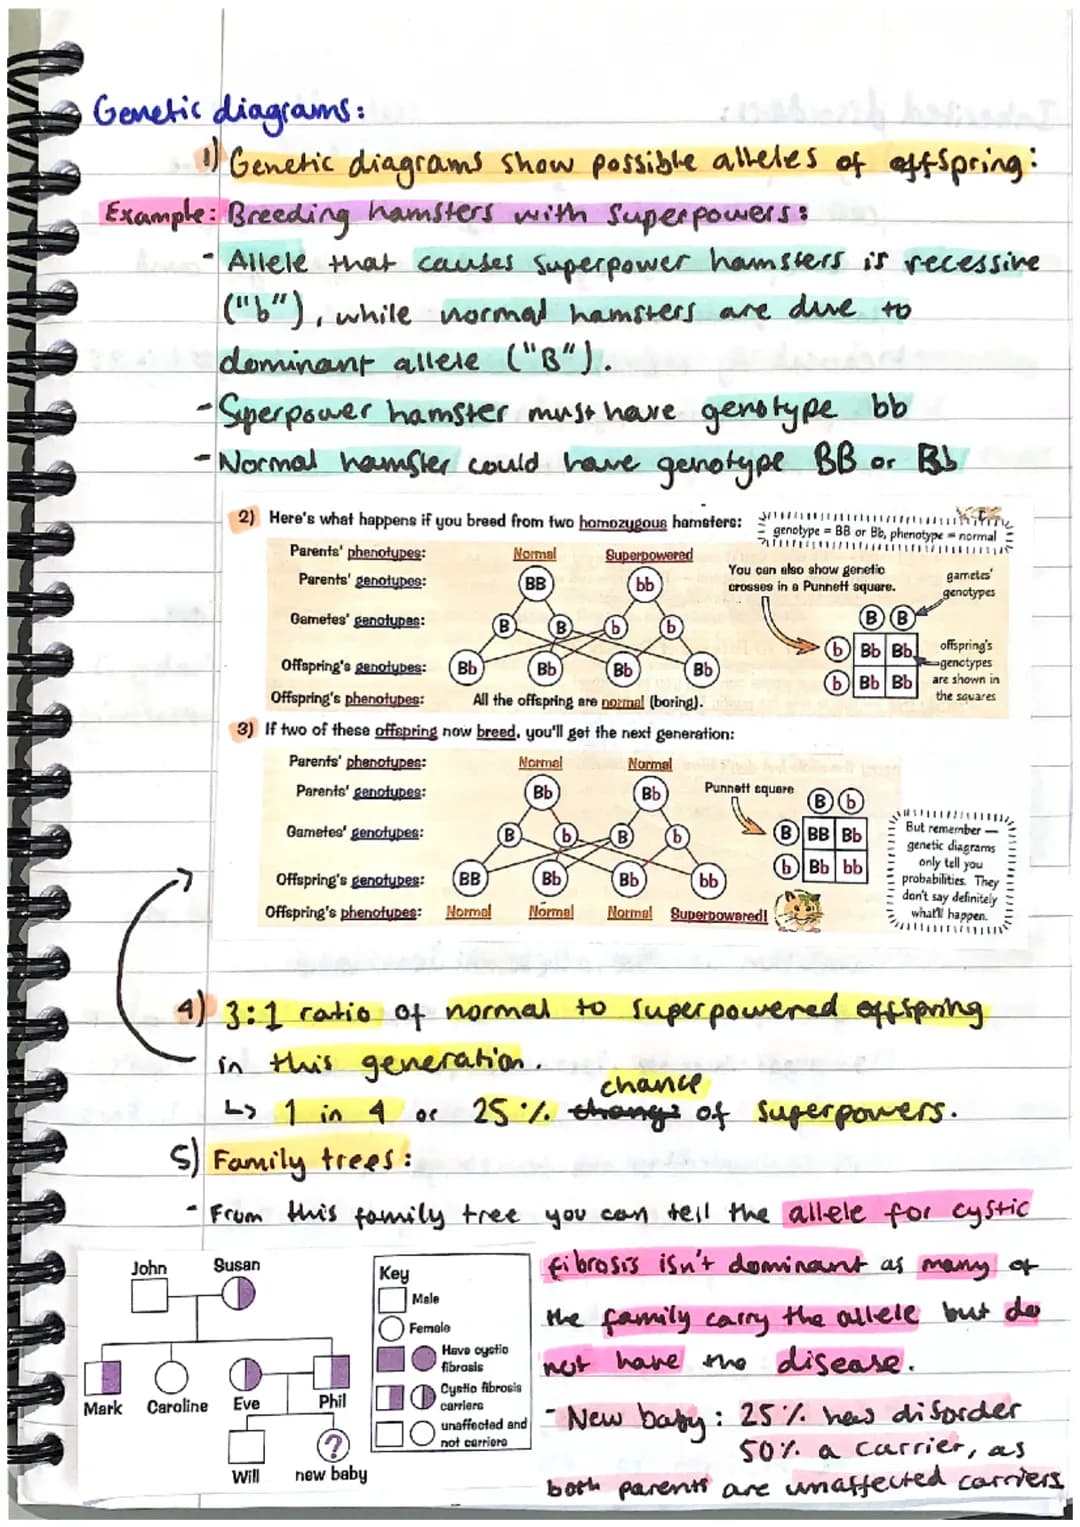 Genetic diagrams:
1) Genetic diagrams show possible alleles of offspring:
Example: Breeding hamsters with superpowers:
- Allele that causes superpower hamsters is recessive
("b"), while normal hamsters are due to
dominant allele ("B").
- Sperpower hamster must have genotype bb
- Normal hamster could have genotype BB or Bb
2) Here's what happens if you breed from two homozygous hamsters:
genotype = BB or Bb, phenotype = normal
Parents' phenotypes: Normal Superpowered
Parents' genotypes: BB bb
Gametes' genotypes: B B b b
Offspring's genotypes: Bb Bb Bb Bb
Offspring's phenotypes: All the offspring are normal (boring).
You can also show genetic
crosses in a Punnett square.
gametes'
genotypes
B B
b Bb Bb
b Bb Bb
offspring's
genotypes
are shown in
the squares
3) If two of these offspring now breed, you'll get the next generation:
Parents' phenotypes: Normal Normal
Parents' genotypes: Bb Bb
Gametes' genotypes: B b B b
Offspring's genotypes: BB Bb Bb bb
Offspring's phenotypes: Normal Normal Normal Superpowered!
Punnett square
B b
B BB Bb
b Bb bb
But remember —
genetic diagrams
only tell you
probabilities. They
don't say definitely
what'll happen.
4) 3:1 ratio of normal to superpowered offspring
in this generation.
chance
↳ 1 in 4 or 25% change of superpowers.
5) Family trees:
- From this family tree you can tell the allele for cystic
fibrosis isn't dominant as many of
the family carry the allele but do
not have the disease.
- New baby: 25% has disorder
50% a carrier, as
both parents are unaffected carriers
John Susan
Mark Caroline Eve Phil
?
Will new baby
Key
Male
Female
Have cystic
fibrosis
Cystic fibrosis
carriers
unaffected and
not carriers